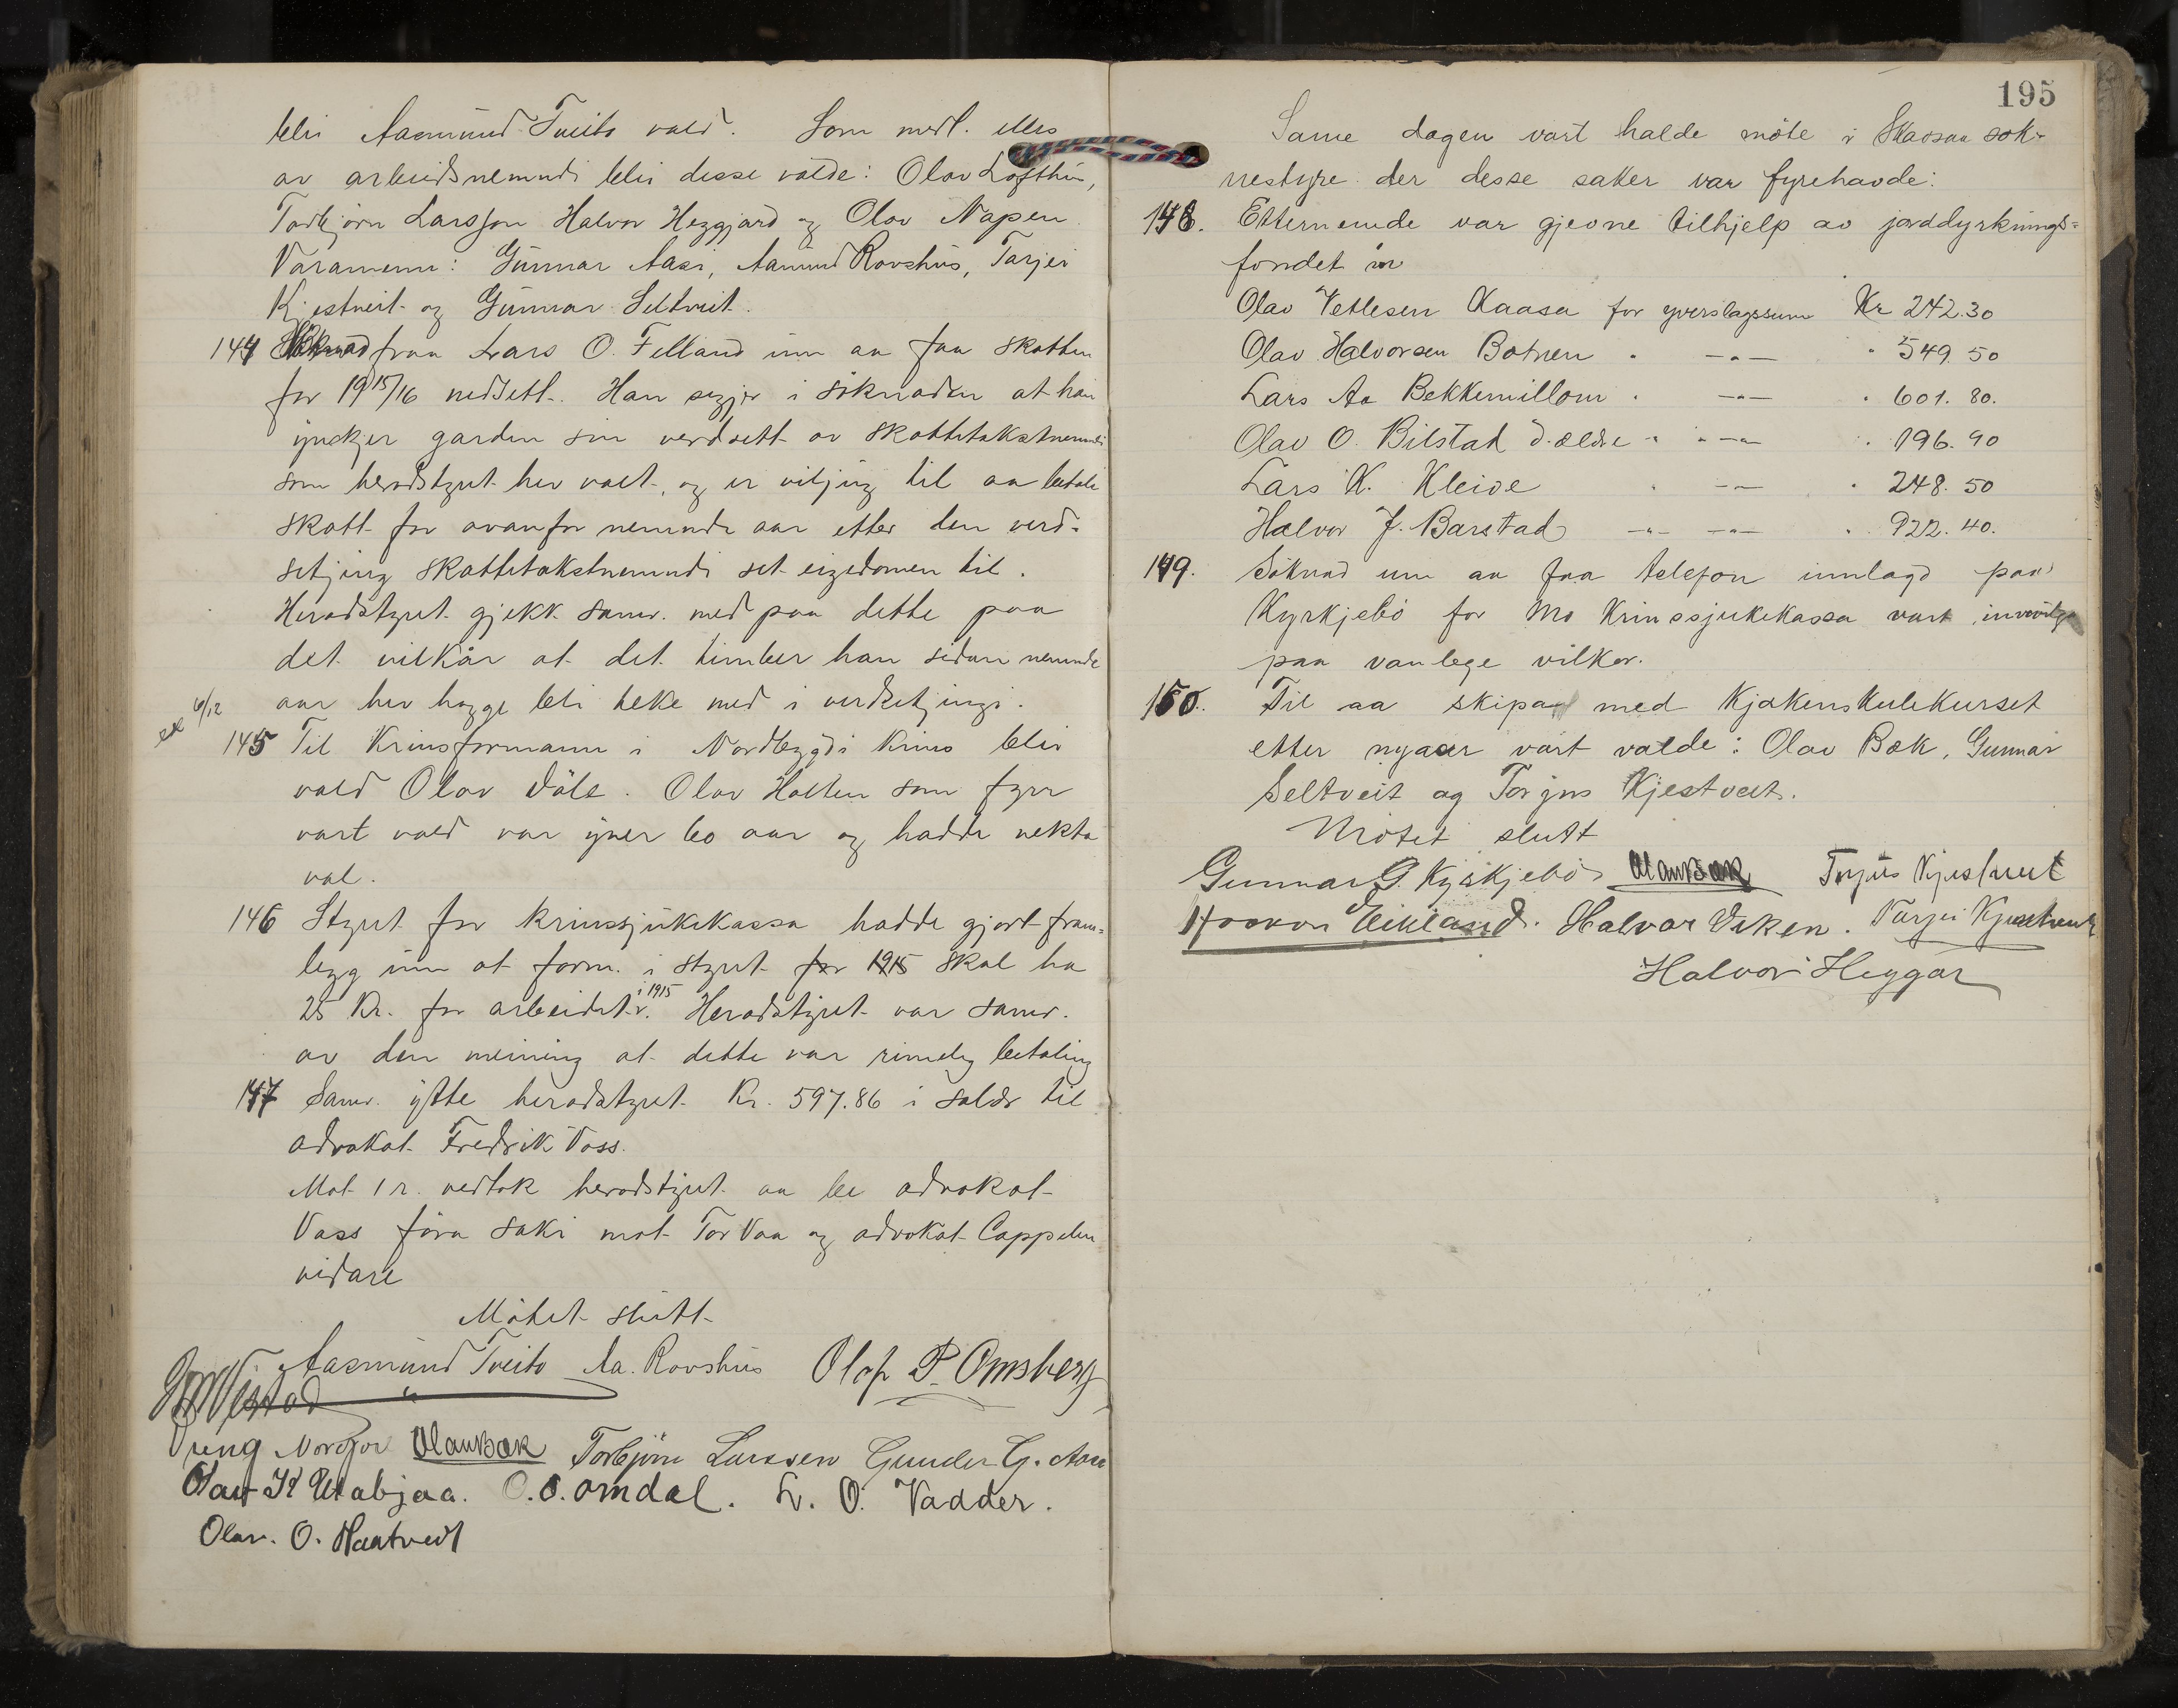 blei Aasmund Tveito vald. Som medl. elles
av arbeidsnemndi blei desse valde: Olav Lofthus,
Torbjørn Larsson Halvor Heggjard og Olav Napen
Varamenn: Gunnar Aasi, Aamund Rovshus, Tarjei
Kjestveit og Gunnar Seltveit.
144 Söknad fraa Lars O. Felland um aa faa skatten
for 1915/16 nedsett. Han segjer i söknaden at han
ynskjer garden sin verdsett av skattetakstnemndi
som heradstyret hev valt, og er viljug til aa betale
skatt for ovanfor nemnde aar etter den verd-
setjing skattetakstnemndi set eigedomen til.
Heradstyret gjekk samr. med paa dette paa
det vilkår at det timber han sidan nemnde
aar hev hogge bli teke med i verdsetjingi.
6/12
145 Til Krinsformann i Nordbygdi Krins blei
vald Olav Dåle. Olav Holten som fyrr
vart vald var yver 60 aar og hadde nekta
val.
146 Styret for krinssjukekassa hadde gjort fram-
legg um at form. i styret for 1915 skal ha
25 Kr. for arbeidet i 1915. Heradstyret var samr.
av den meining at dette var rimeleg betaling
147 Samr. ytte heradstyret Kr. 597.86 i salær til
advokat Fredrik Voss.
Mot 1 r. vedtok heradstyret aa be advokat
Voss föra saki mot Tor Vaa og advokat Cappelen
vidare
Mötet slutt
Aasmund Tveito Aa. Rovshus Olaf P. Omsberg
Olav Bæk Torbjörn Larssen Gunder G.
Olav K Utabjaa. O.O. Omdal. L. O. Vadder.
Olav. O. Haatvedt
195
Same dagen vart halde möte i Skaosaa sok-
nestyre der desse saker var fyrehavde:
148. Etternemde var gjevne tilhjelp av jorddyrknings-
fondet
Olav Vetlesen Kaasa for yverslagssum Kr 242.30
Olav Halvorsen Botnen " -"- " 549.50
Lars Aa Bekkemillom " -"- " 601.80.
Olav O. Bilstad d. eldre " -"- " 196.90
Lars K. Kleive " -"- " 248.50
Halvor J. Barstad -"- -"- " 922.40.
149. Söknad um aa faa telefon innlagd paa
Kyrkjebö for Mo Krinssjukekassa vart innvilga
paa vanlege vilkor.
150. Til aa skipa med Kjøkenskulekurset
etter nyaar vart valde: Olav Bæk, Gunnar
Seltveit og Torgus Kjestveit.
Mötet slutt
Gunnar G. Kyrkjebö Olav Bæk Torjus Kjestveit
Haavor Eikland. Halvor Viken. Tarjei Kjestveit
Halvor Heggar